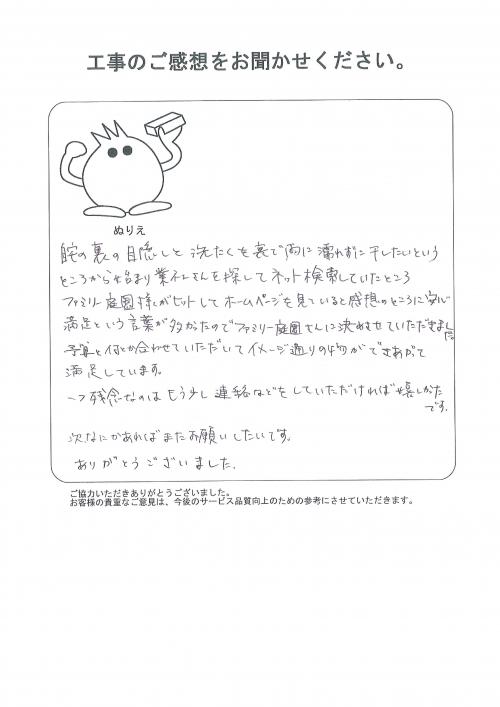 工事のご感想をお聞かせください。
ぬりえ
自宅の裏の目隠しと洗たくを裏で雨に濡れずに干したいという
ところから始まり業者さんを探してネット検索していたところ
ファミリー庭園様がヒットしてホームページを見ていると感想のところに
満足という言葉が多かったのでファミリー庭園さんに決めさせていただきました
予算と何とか合わせていただいてイメージ通りの物ができあがって
満足しています。
一つ残念なのはもう少し連絡などをしていただければ嬉しかった
です。
次なにかあればまたお願いしたいです。
ありがとうございました。
ご協力いただきありがとうございました。
お客様の貴重なご意見は、今後のサービス品質向上のための参考にさせていただきます。